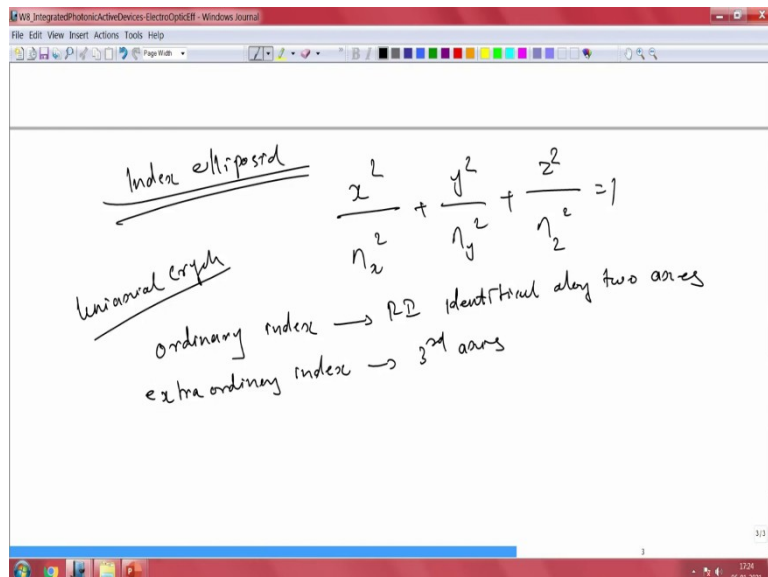 W8_IntegratedPhotonicActiveDevices-ElectroOpticEff - Windows Journal
File Edit View Insert Actions Tools Help
Page Width
B I
Index ellipsoid
x² / n_x² + y² / n_y² + z² / n_z² = 1
Uniaxial
ordinary index → RI identitical along two axes
extra ordinary index → 3rd axis
3/3
3
17:24